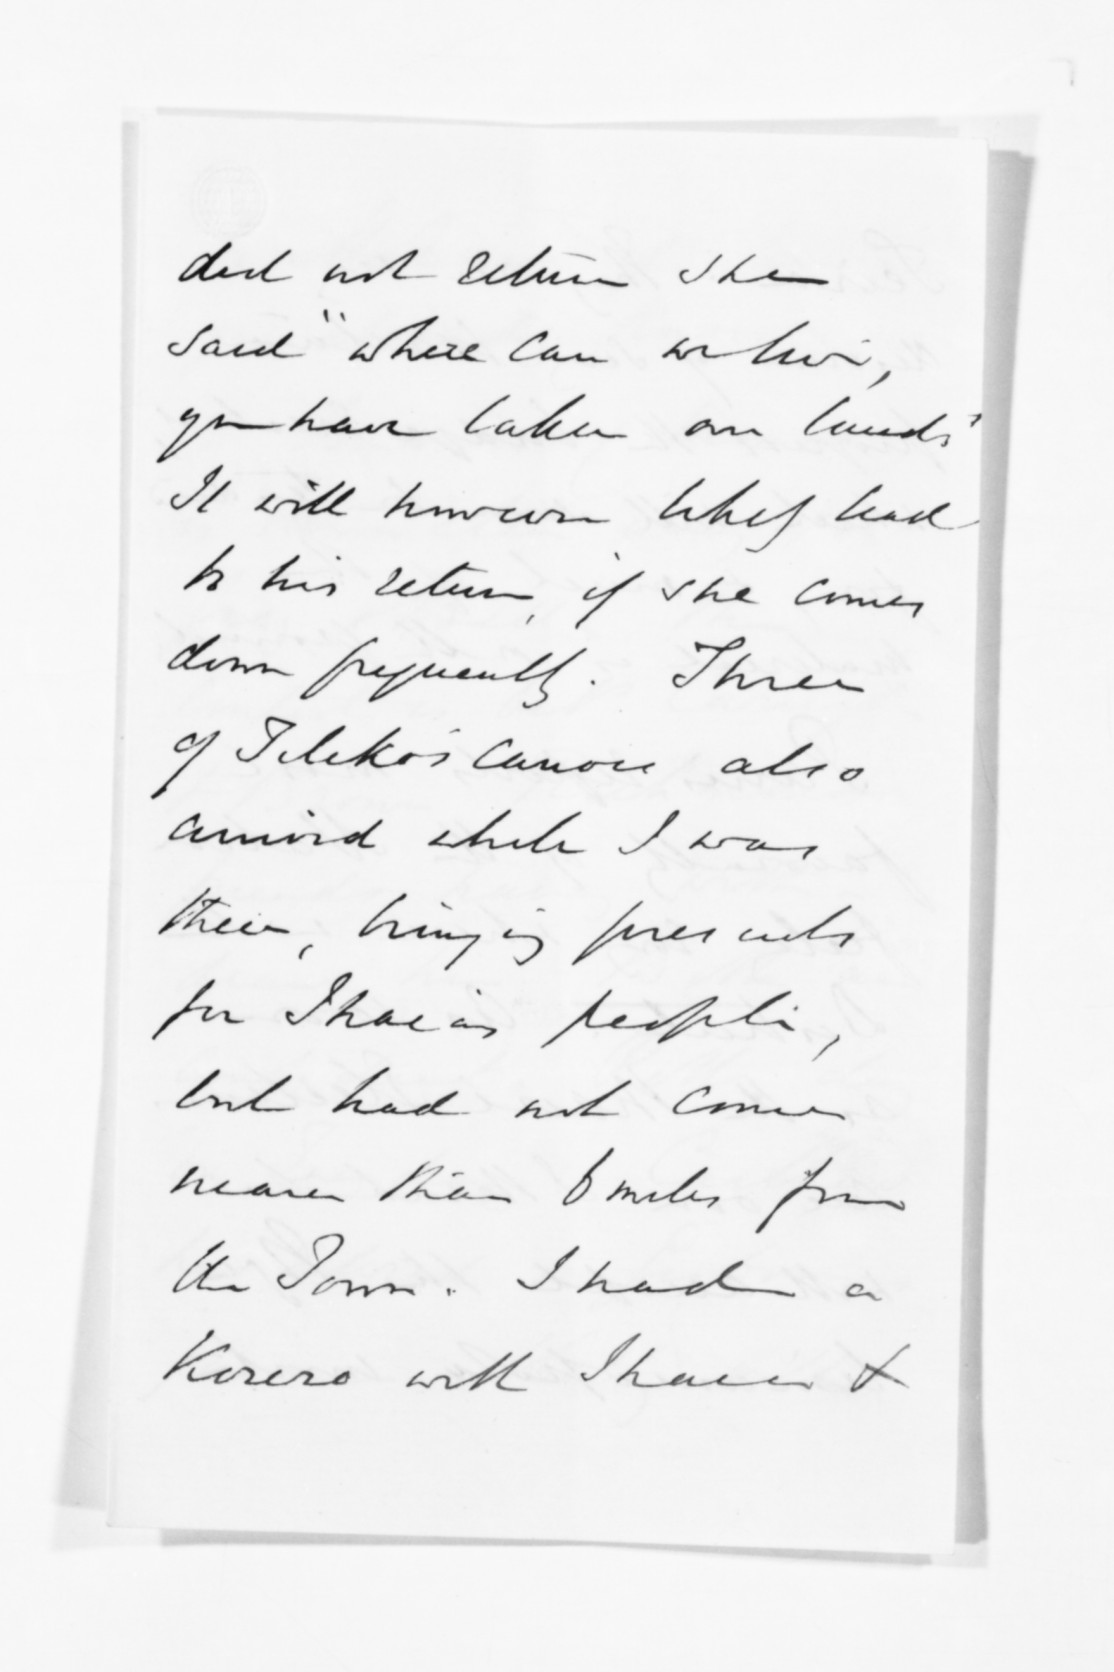 did not return she
said "where can we live,
you have taken our lands"
It will however likely lead
to his return, if she comes
down frequently. Three
of Tileko's canoes also
arrived while I was
there, bringing presents
for Ihaia's people,
but had not come
nearer than 6 miles from
the Town. I had a
Korero with Ihaia &